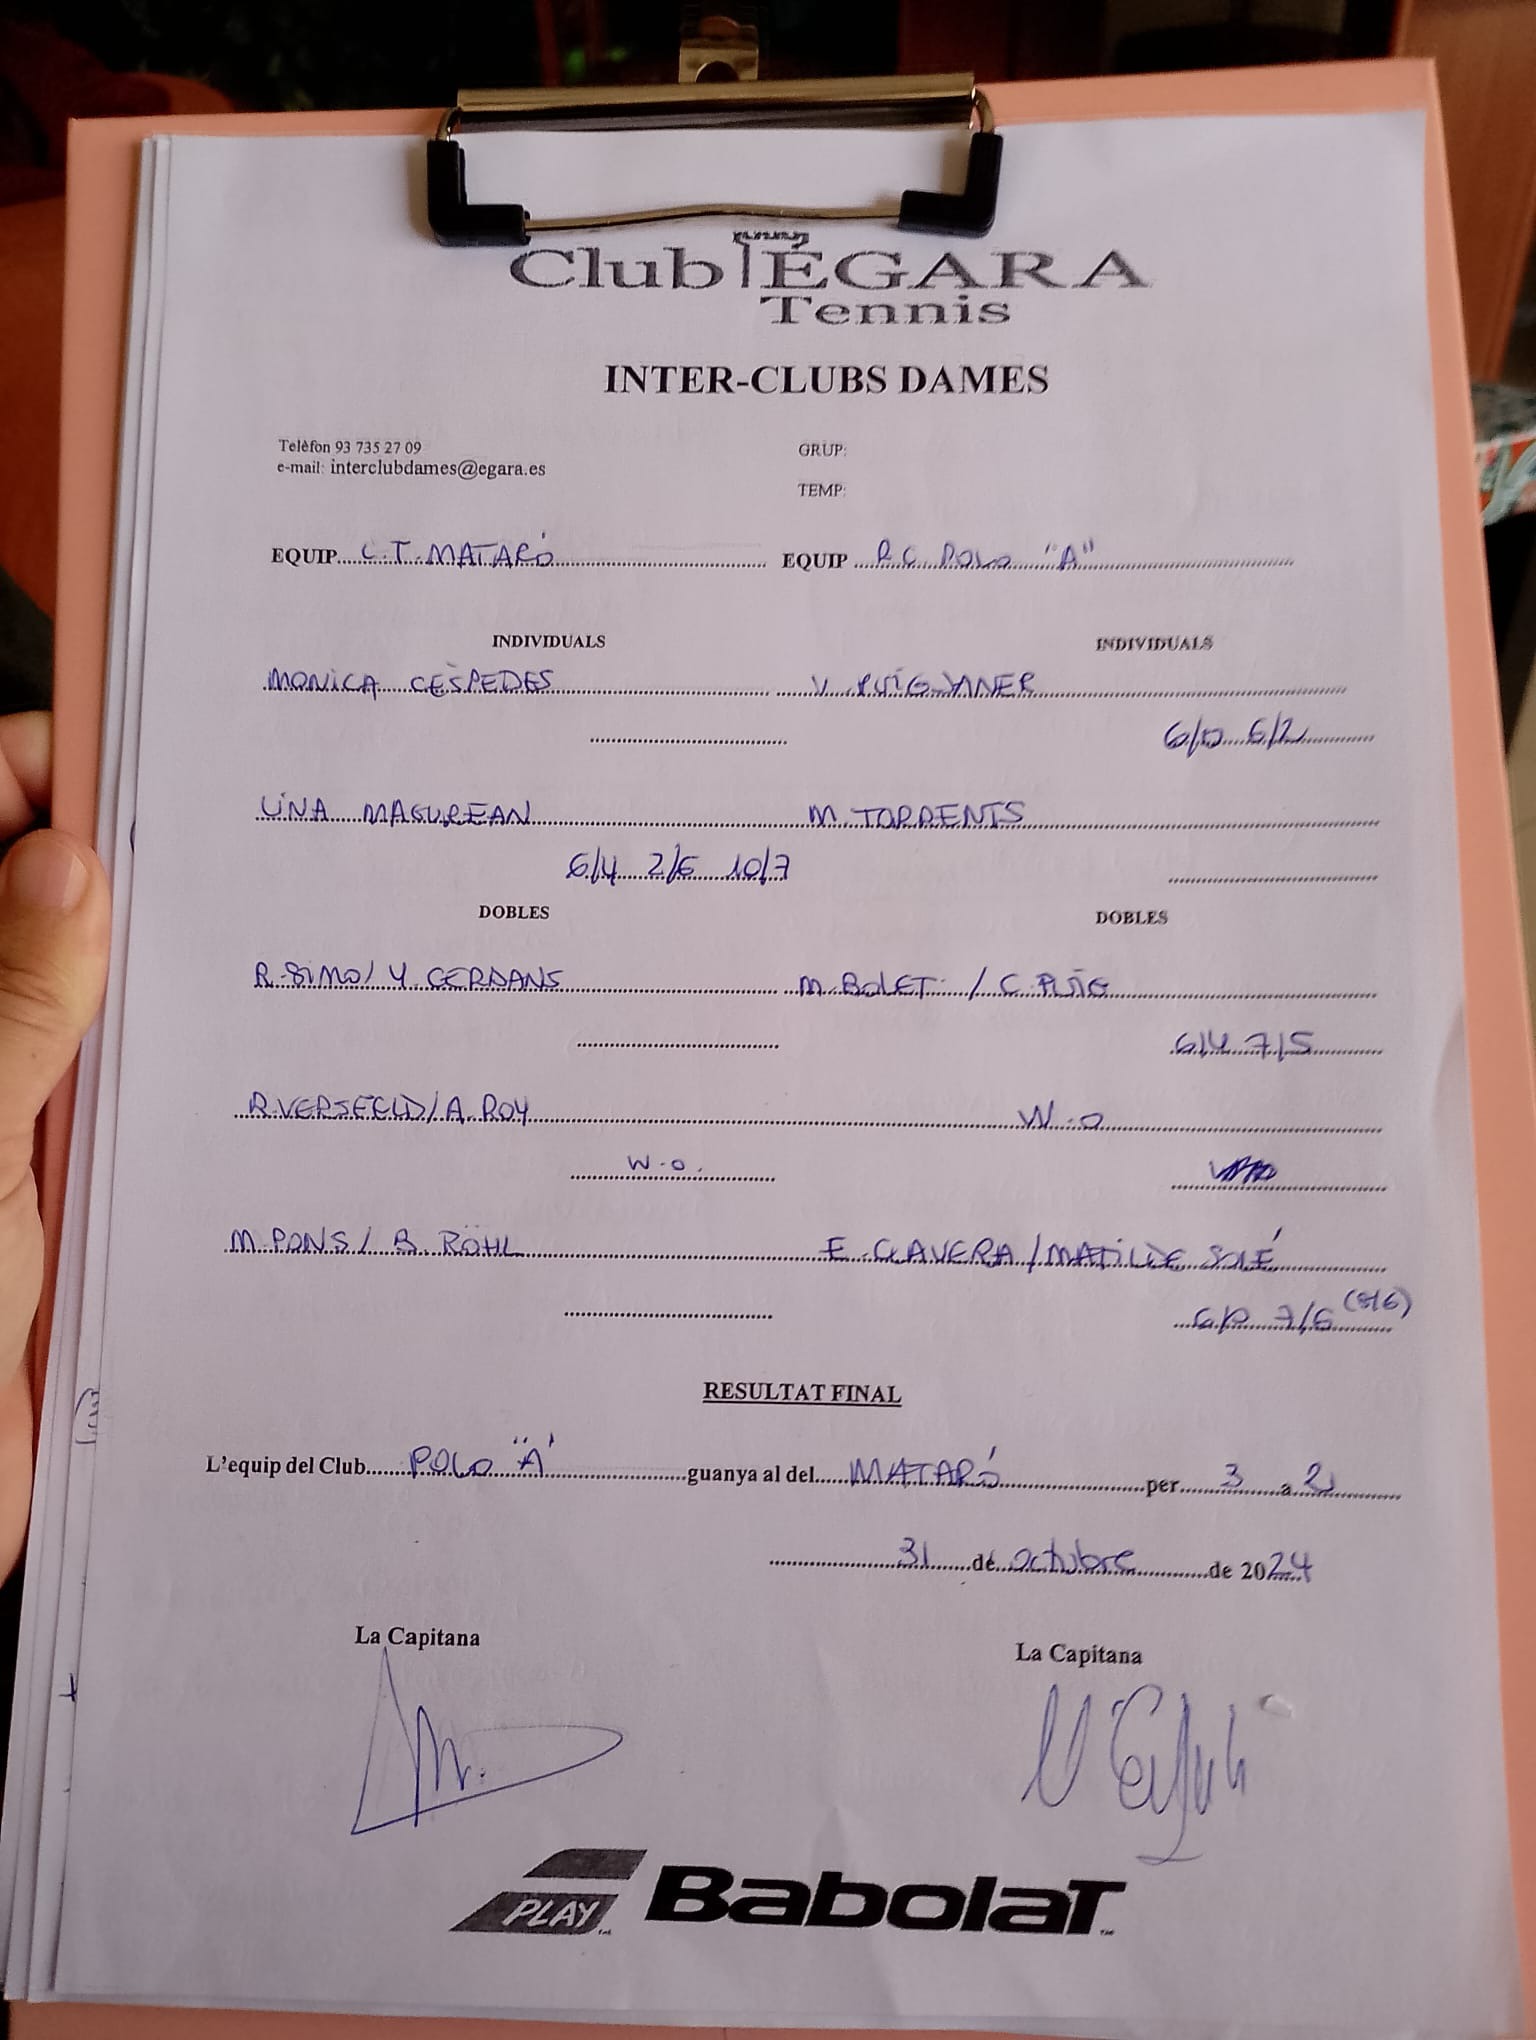 Club ÉGARA
Tennis
INTER-CLUBS DAMES
Telèfon 93 735 27 09
e-mail: interclubdames@egara.es
GRUP:
TEMP:
EQUIP C.T. MATARÓ EQUIP R.C. POLO "A"
INDIVIDUALS INDIVIDUALS
MONICA CÉSPEDES V. PUIG JANER
6/0 6/2
LINA MAGUREAN M. TORRENTS
6/4 2/6 10/7
DOBLES DOBLES
R. SIMO / Y. CERDANS M. BOLET / C. PUIG
6/4 7/5
R. VERSFELD / A. ROY W.O
W.O.
M. PONS / B. RÖHL E. CLAVERA / MATILDE SOLÉ
7/6
RESULTAT FINAL
L'equip del Club POLO "A" guanya al del MATARÓ per 3 a 2
31 de octubre de 2024
La Capitana La Capitana
PLAY BabolaT